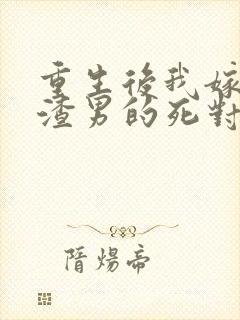 重生後我嫁
渣男的死對
隋煬帝